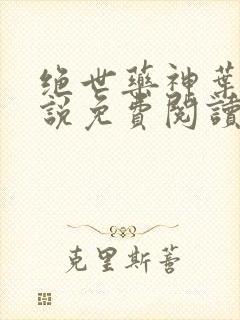 绝世藥神葉
說免費閱讀
克里斯蒂